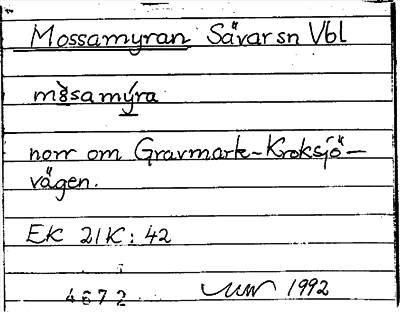 Mossamyran Sävar sn Vbl
norr om Gravmark-Kroksjö-
vägen.
EK 21K:42
4672
1992